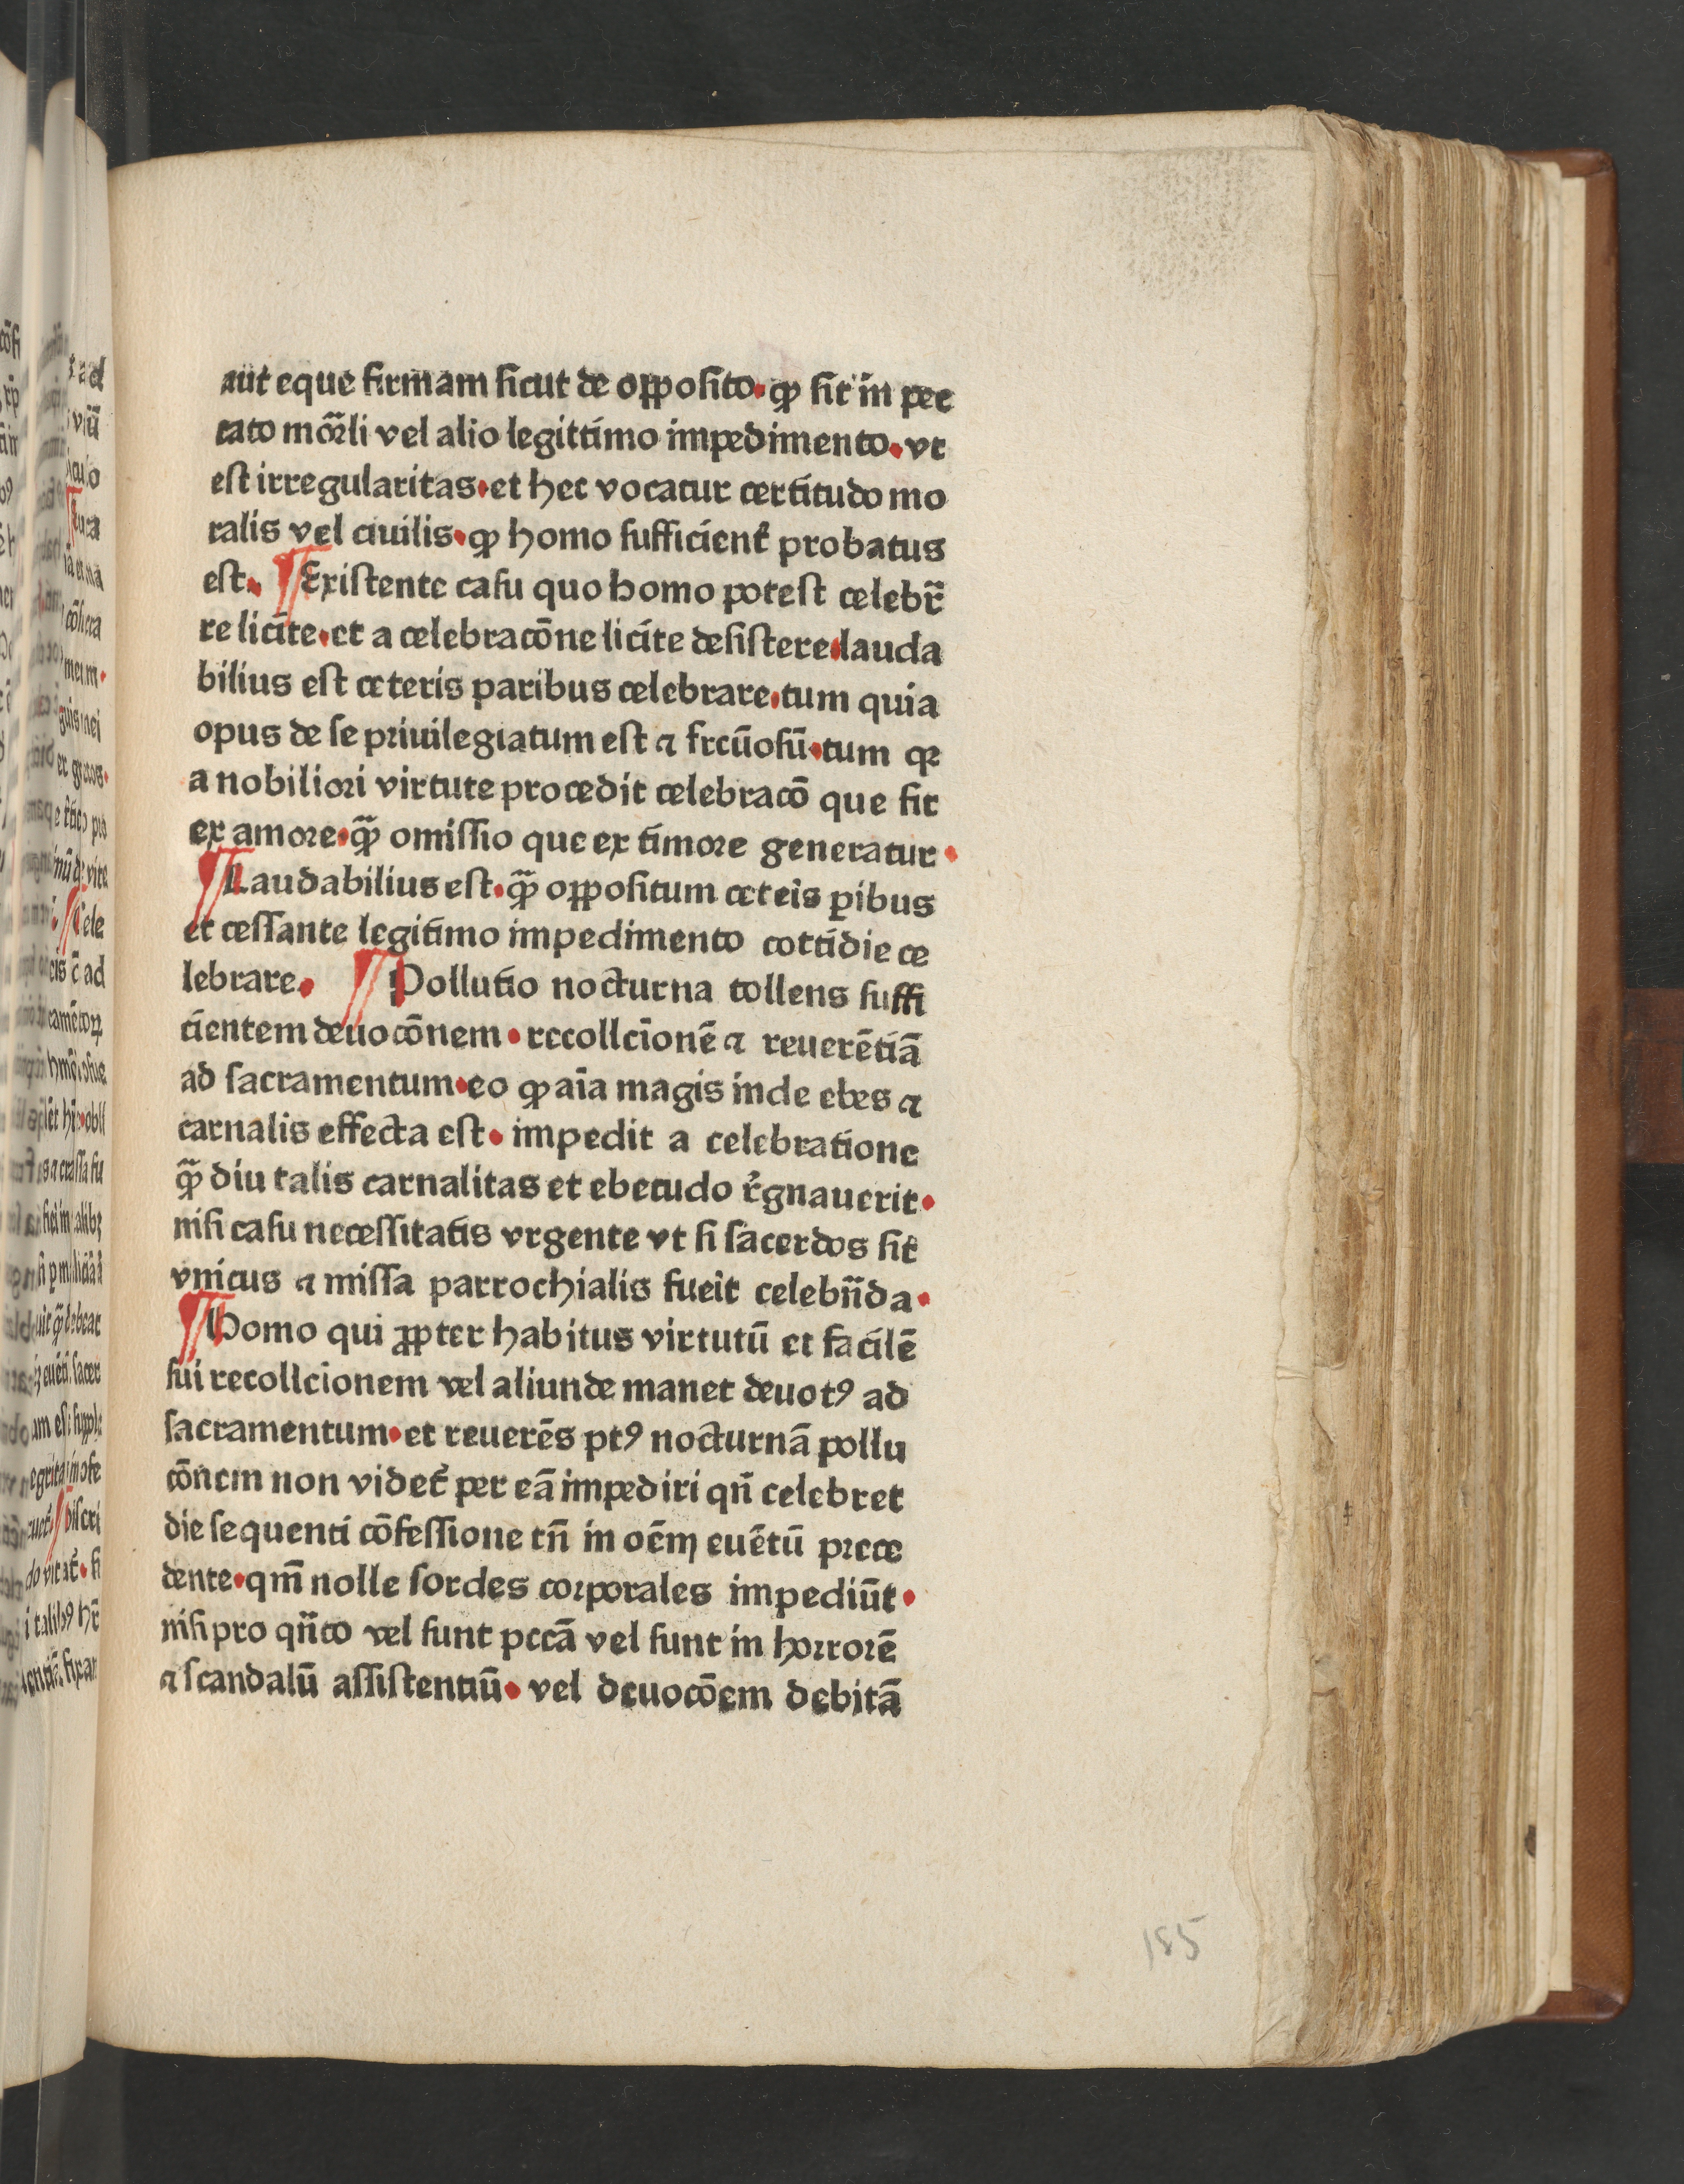 aut eque firmam ſicut de oppoſito. ꝙ ſit in pec
cato moꝛ̃li vel alio legittimo impedimento. vt
eſt irregularitas. et hec vocatur certitudo mo
ralis vel ciuilis. ꝙ homo ſufficient̉ probatus
eſt. ¶ Exiſtente caſu quo homo poteſt celebr̃
re licite. et a celebracōne licite deſiſtere. lauda
bilius eſt ceteris paribus celebrare. tum quia
opus de ſe priuilegiatum eſt ⁊ frcūoſū. tum qꝛ
a nobilioꝛi virtute procedit celebracō que fit
ex amoꝛe. ꝙ̃ omiſſio que ex timoꝛe generatur.
¶ Laudabilius eſt. ꝙ̃ oppoſitum ceteis ꝑibus
et ceſſante legitimo impedimento cottidie ce
lebrare. ¶ Pollutio nocturna tollens ſuffi
cientem deuocōnem. recollcionē ⁊ reuerētiā
ad ſacramentum. eo ꝙ aīa magis inde ebes ⁊
carnalis effecta eſt. impedit a celebratione
ꝙ̃ diu talis carnalitas et ebetudo r̉gnauerit.
niſi caſu neceſſitatis vrgente vt ſi ſacerdos ſit
vnicus ⁊ miſſa parrochialis fueit celebñda.
¶ Homo qui ꝓpter habitus virtutū et facilē
ſui recollcionem vel aliunde manet deuotꝰ ad
ſacramentum. et reuerēs ptꝰ nocturnā pollu
cōnem non videt̉ per eā impediri qñ celebret
die ſequenti cōfeſſione tñ in oēm euētū pꝛece
dente. qm̄ nolle ſordes coꝛporales impediūt.
niſi pro qñto vel ſunt pccā vel ſunt in hoꝛroꝛē
⁊ ſcandalū aſſiſtentiū. vel deuocōem debitā
185